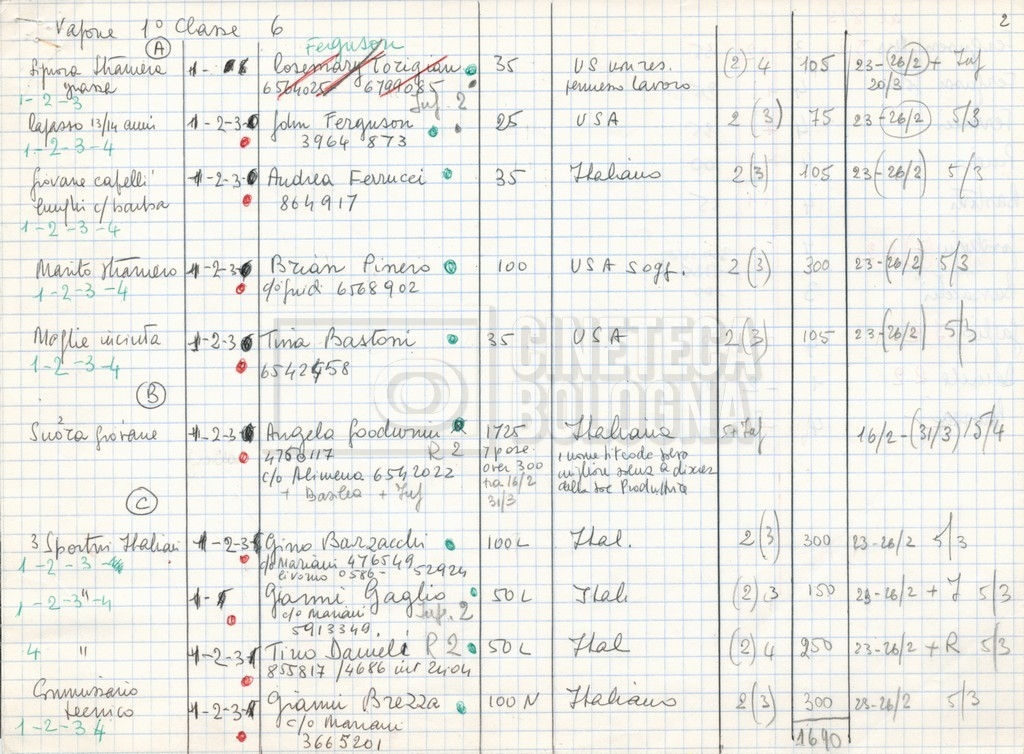 Vapore 1° Classe 6
2
(A)
Ferguson
Signora Straniera 1- Rosemary Torigian 35 US non res. (2) 4 105 23-(26/2) + Inf
grassa 6564025 6799085 permesso lavoro 20/3
1-2-3 Inf. 2
Ragasso 13/14 anni 1-2-3- John Ferguson 25 USA 2 (3) 75 23-(26/2) 5/3
1-2-3-4 3964 873
Giovane capelli 1-2-3- Andrea Ferrucci 35 Italiano 2(3) 105 23-(26/2) 5/3
lunghi c/barba 864917
1-2-3-4
Marito straniero 1-2-3- Brian Pinero 100 USA Sogg. 2(3) 300 23-(26/2) 5/3
1-2-3-4 c/o Guidi 6568902
Moglie incinta 1-2-3- Tina Bastoni 35 USA 2(3) 105 23-(26/2) 5/3
1-2-3-4 6542458
(B)
Suora giovane 1-2-3- Angela Goodwin 1725 Italiana 5+Inf 16/2-(31/3)/5/4
2
4750117 R 2 7 pose 1 nome titcoda solo
c/o Alimena 6542022 over 300 migliore solus a discrez
+ Basilea + Inf tra 16/2 della soc Produttrice
31/3
(C)
3 Sportivi Italiani 1-2-3- Gino Barzacchi 100L Ital. 2(3) 300 23-26/2 5/3
1-2-3- c/o Mariani 476549
Livorno 0586- 52924
" 1- Gianni Gaglio 50L Ital. (2)3 150 23-26/2 + I 5/3
1-2-3-4 c/o Mariani Inf. 2
5913349.
4 " 1-2-3- Tino Danieli R2 50L Ital (2)4 250 23-26/2 + R 5/3
855817/4686 int 2404
Commissario 1-2-3- Gianni Brezza 100N Italiano 2(3) 300 23-26/2 5/3
tecnico c/o Mariani
1-2-3 4 3665201
1690
CINETECA
BOLOGNA